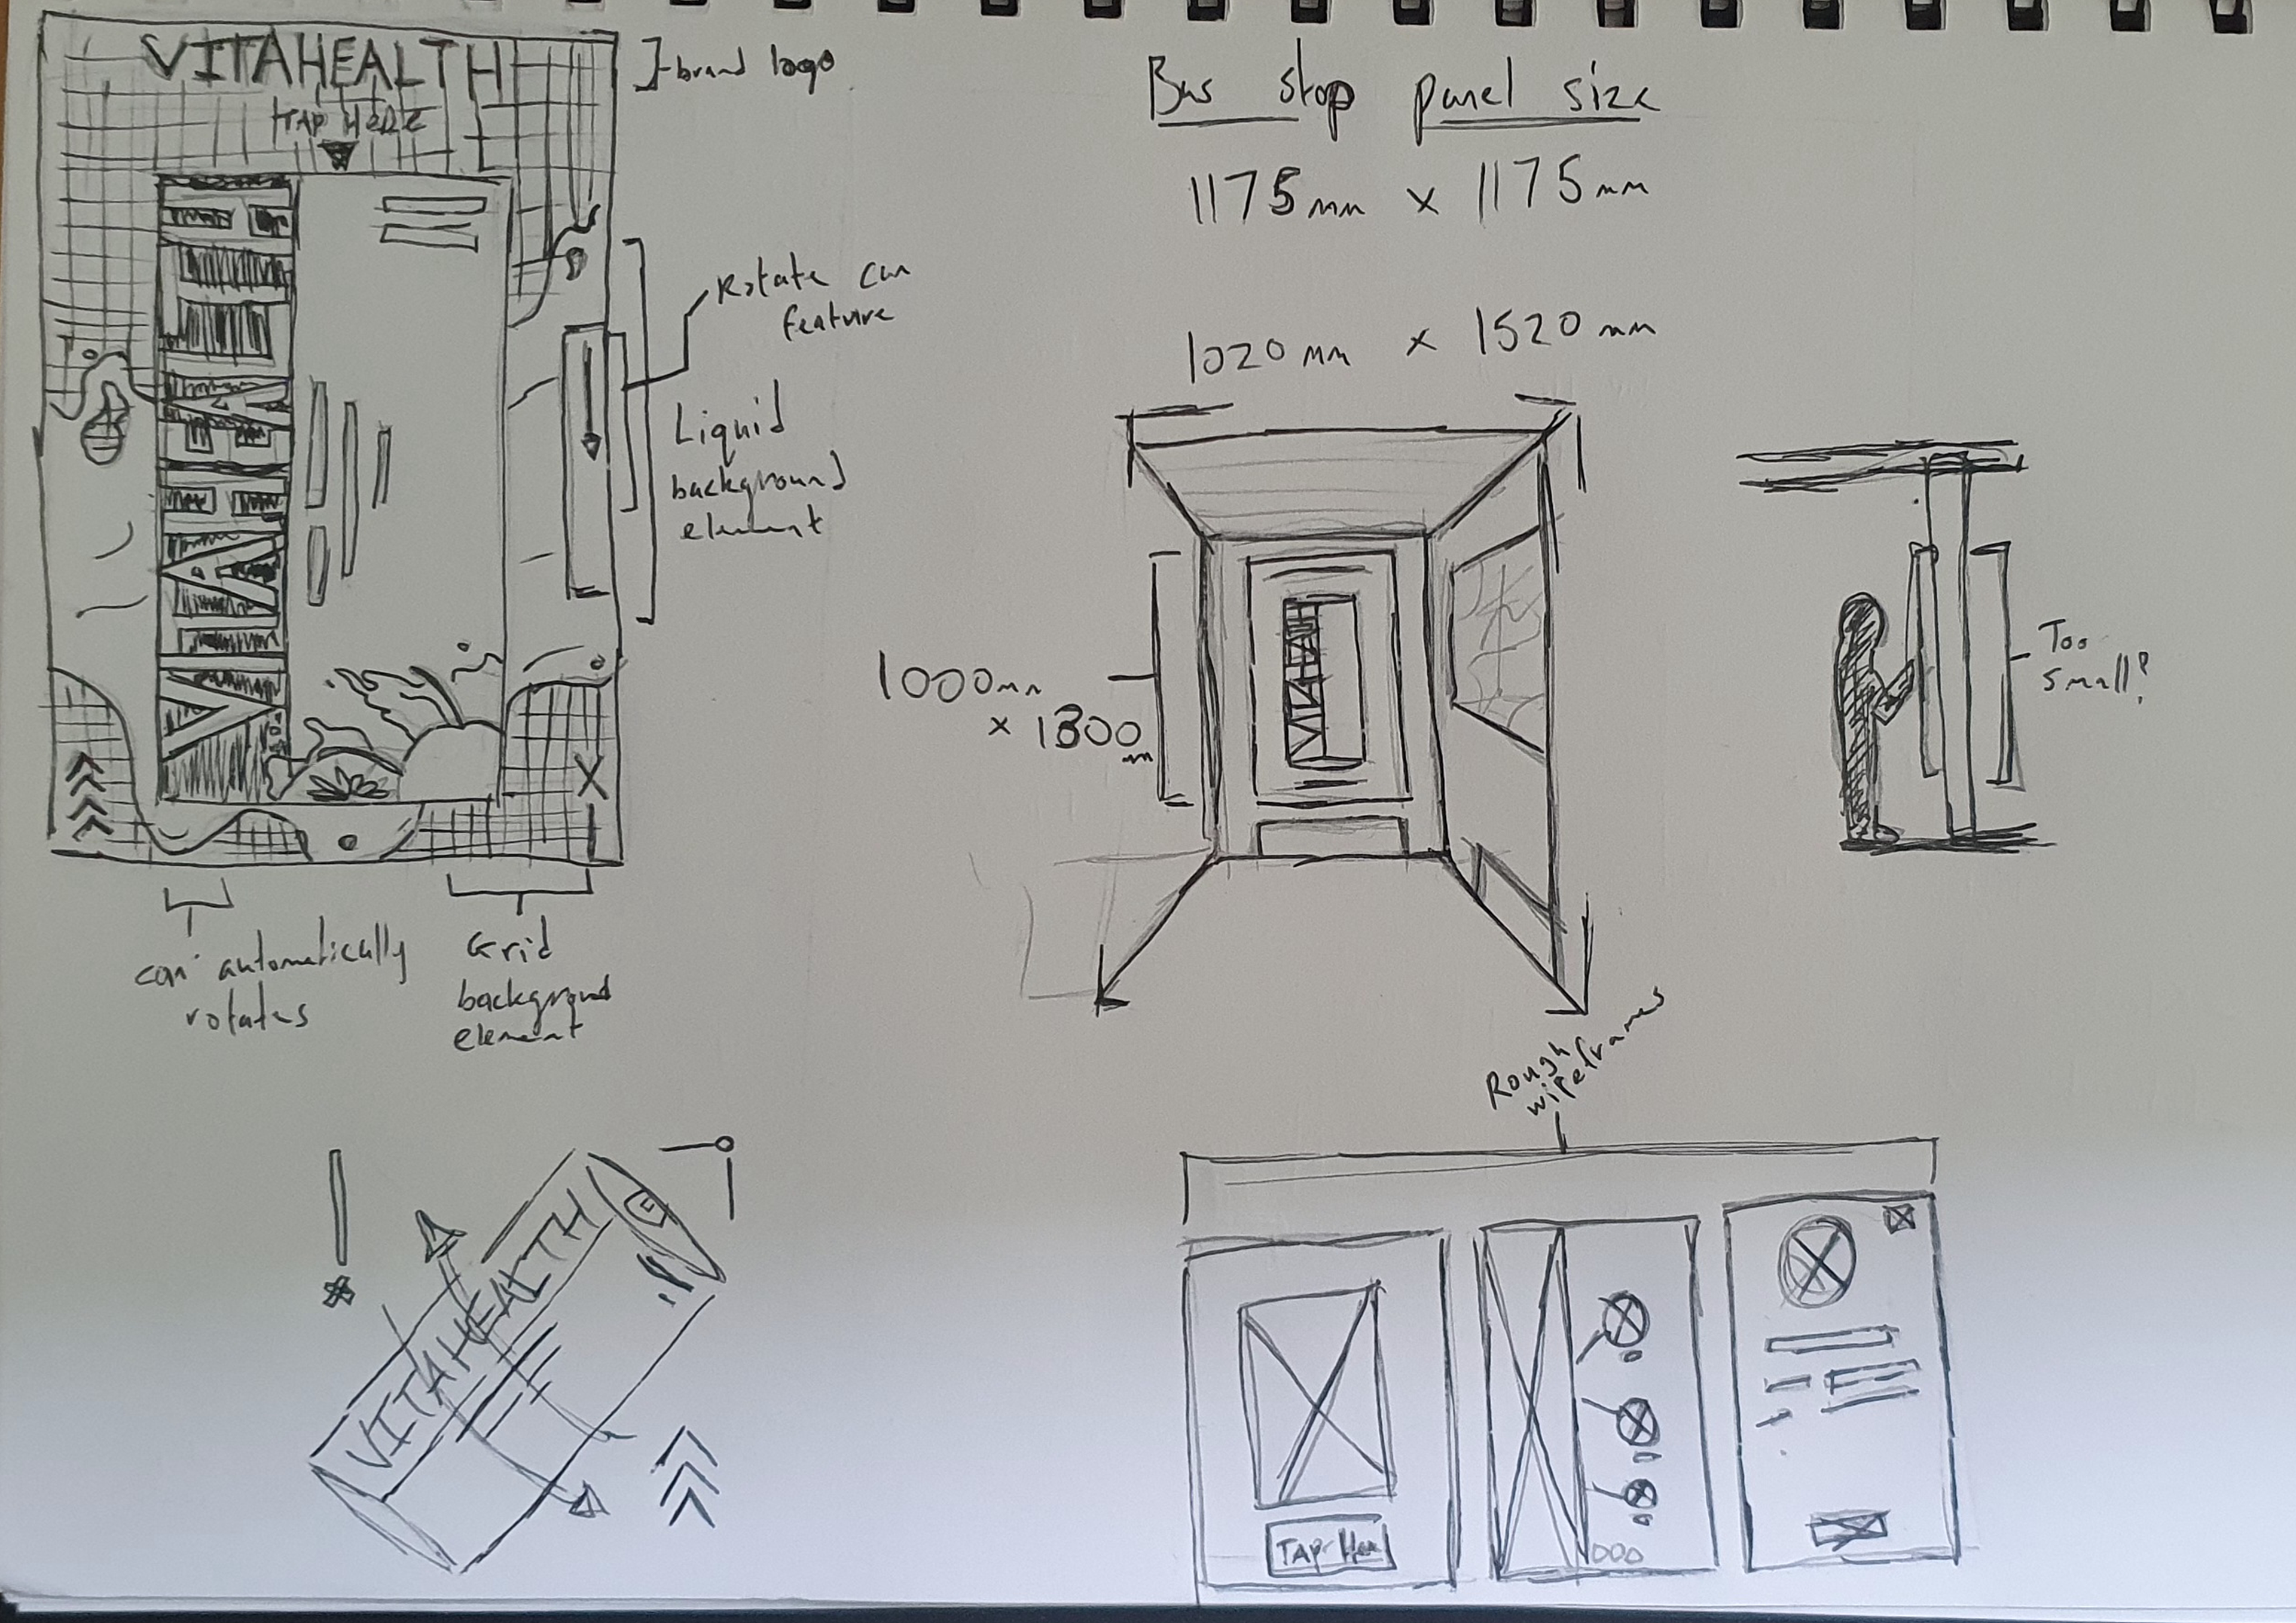 VITAHEALTH
TAP HERE
brand logo
Rotate can
feature
Liquid
background
element
can automatically
rotates
Grid
background
element
VITAHEALTH
Bus stop panel size
1175mm x 1175mm
1020mm x 1520mm
1000mm
x 1300
m
Too
small?
Rough
wireframes
TAP Here